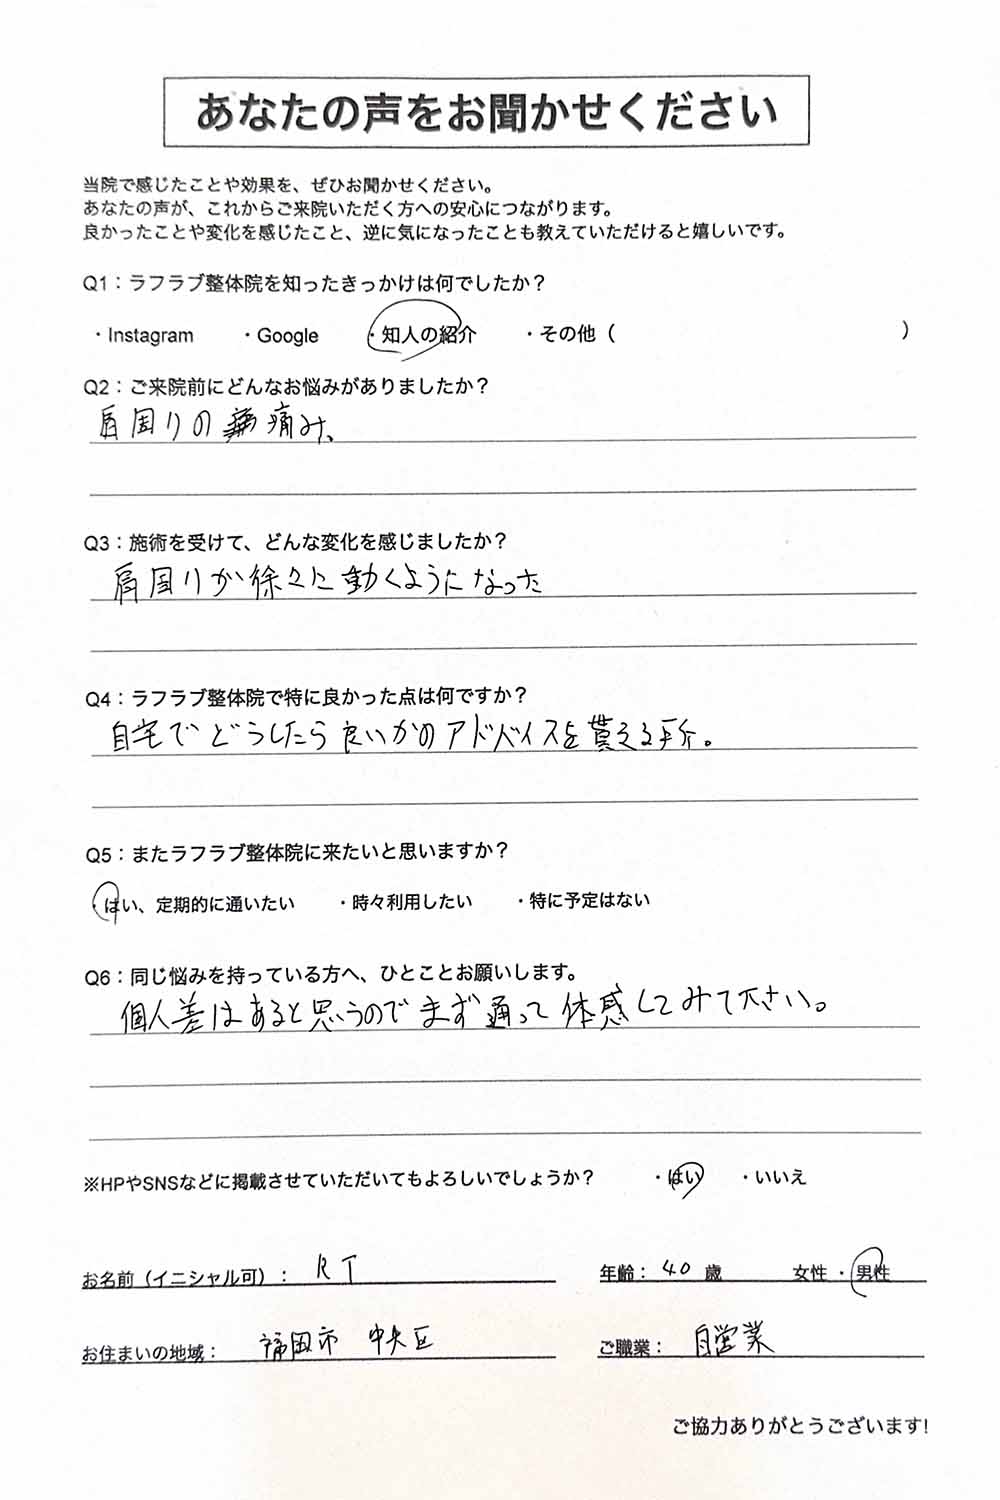 あなたの声をお聞かせください
当院で感じたことや効果を、ぜひお聞かせください。
あなたの声が、これからご来院いただく方への安心につながります。
良かったことや変化を感じたこと、逆に気になったことも教えていただけると嬉しいです。
Q1：ラフラブ整体院を知ったきっかけは何でしたか？
・Instagram ・Google ・知人の紹介 ・その他（ ）
Q2：ご来院前にどんなお悩みがありましたか？
肩周りの痛み、
Q3：施術を受けて、どんな変化を感じましたか？
肩周りが徐々に動くようになった
Q4：ラフラブ整体院で特に良かった点は何ですか？
自宅でどうしたら良いかのアドバイスを貰える所。
Q5：またラフラブ整体院に来たいと思いますか？
・はい、定期的に通いたい ・時々利用したい ・特に予定はない
Q6：同じ悩みを持っている方へ、ひとことお願いします。
個人差はあると思うのでまず通って体感してみて下さい。
※HPやSNSなどに掲載させていただいてもよろしいでしょうか？ ・はい ・いいえ
お名前（イニシャル可）： R T 年齢： 40 歳 女性 ・ 男性
お住まいの地域： 福岡市 中央区 ご職業： 自営業
ご協力ありがとうございます!